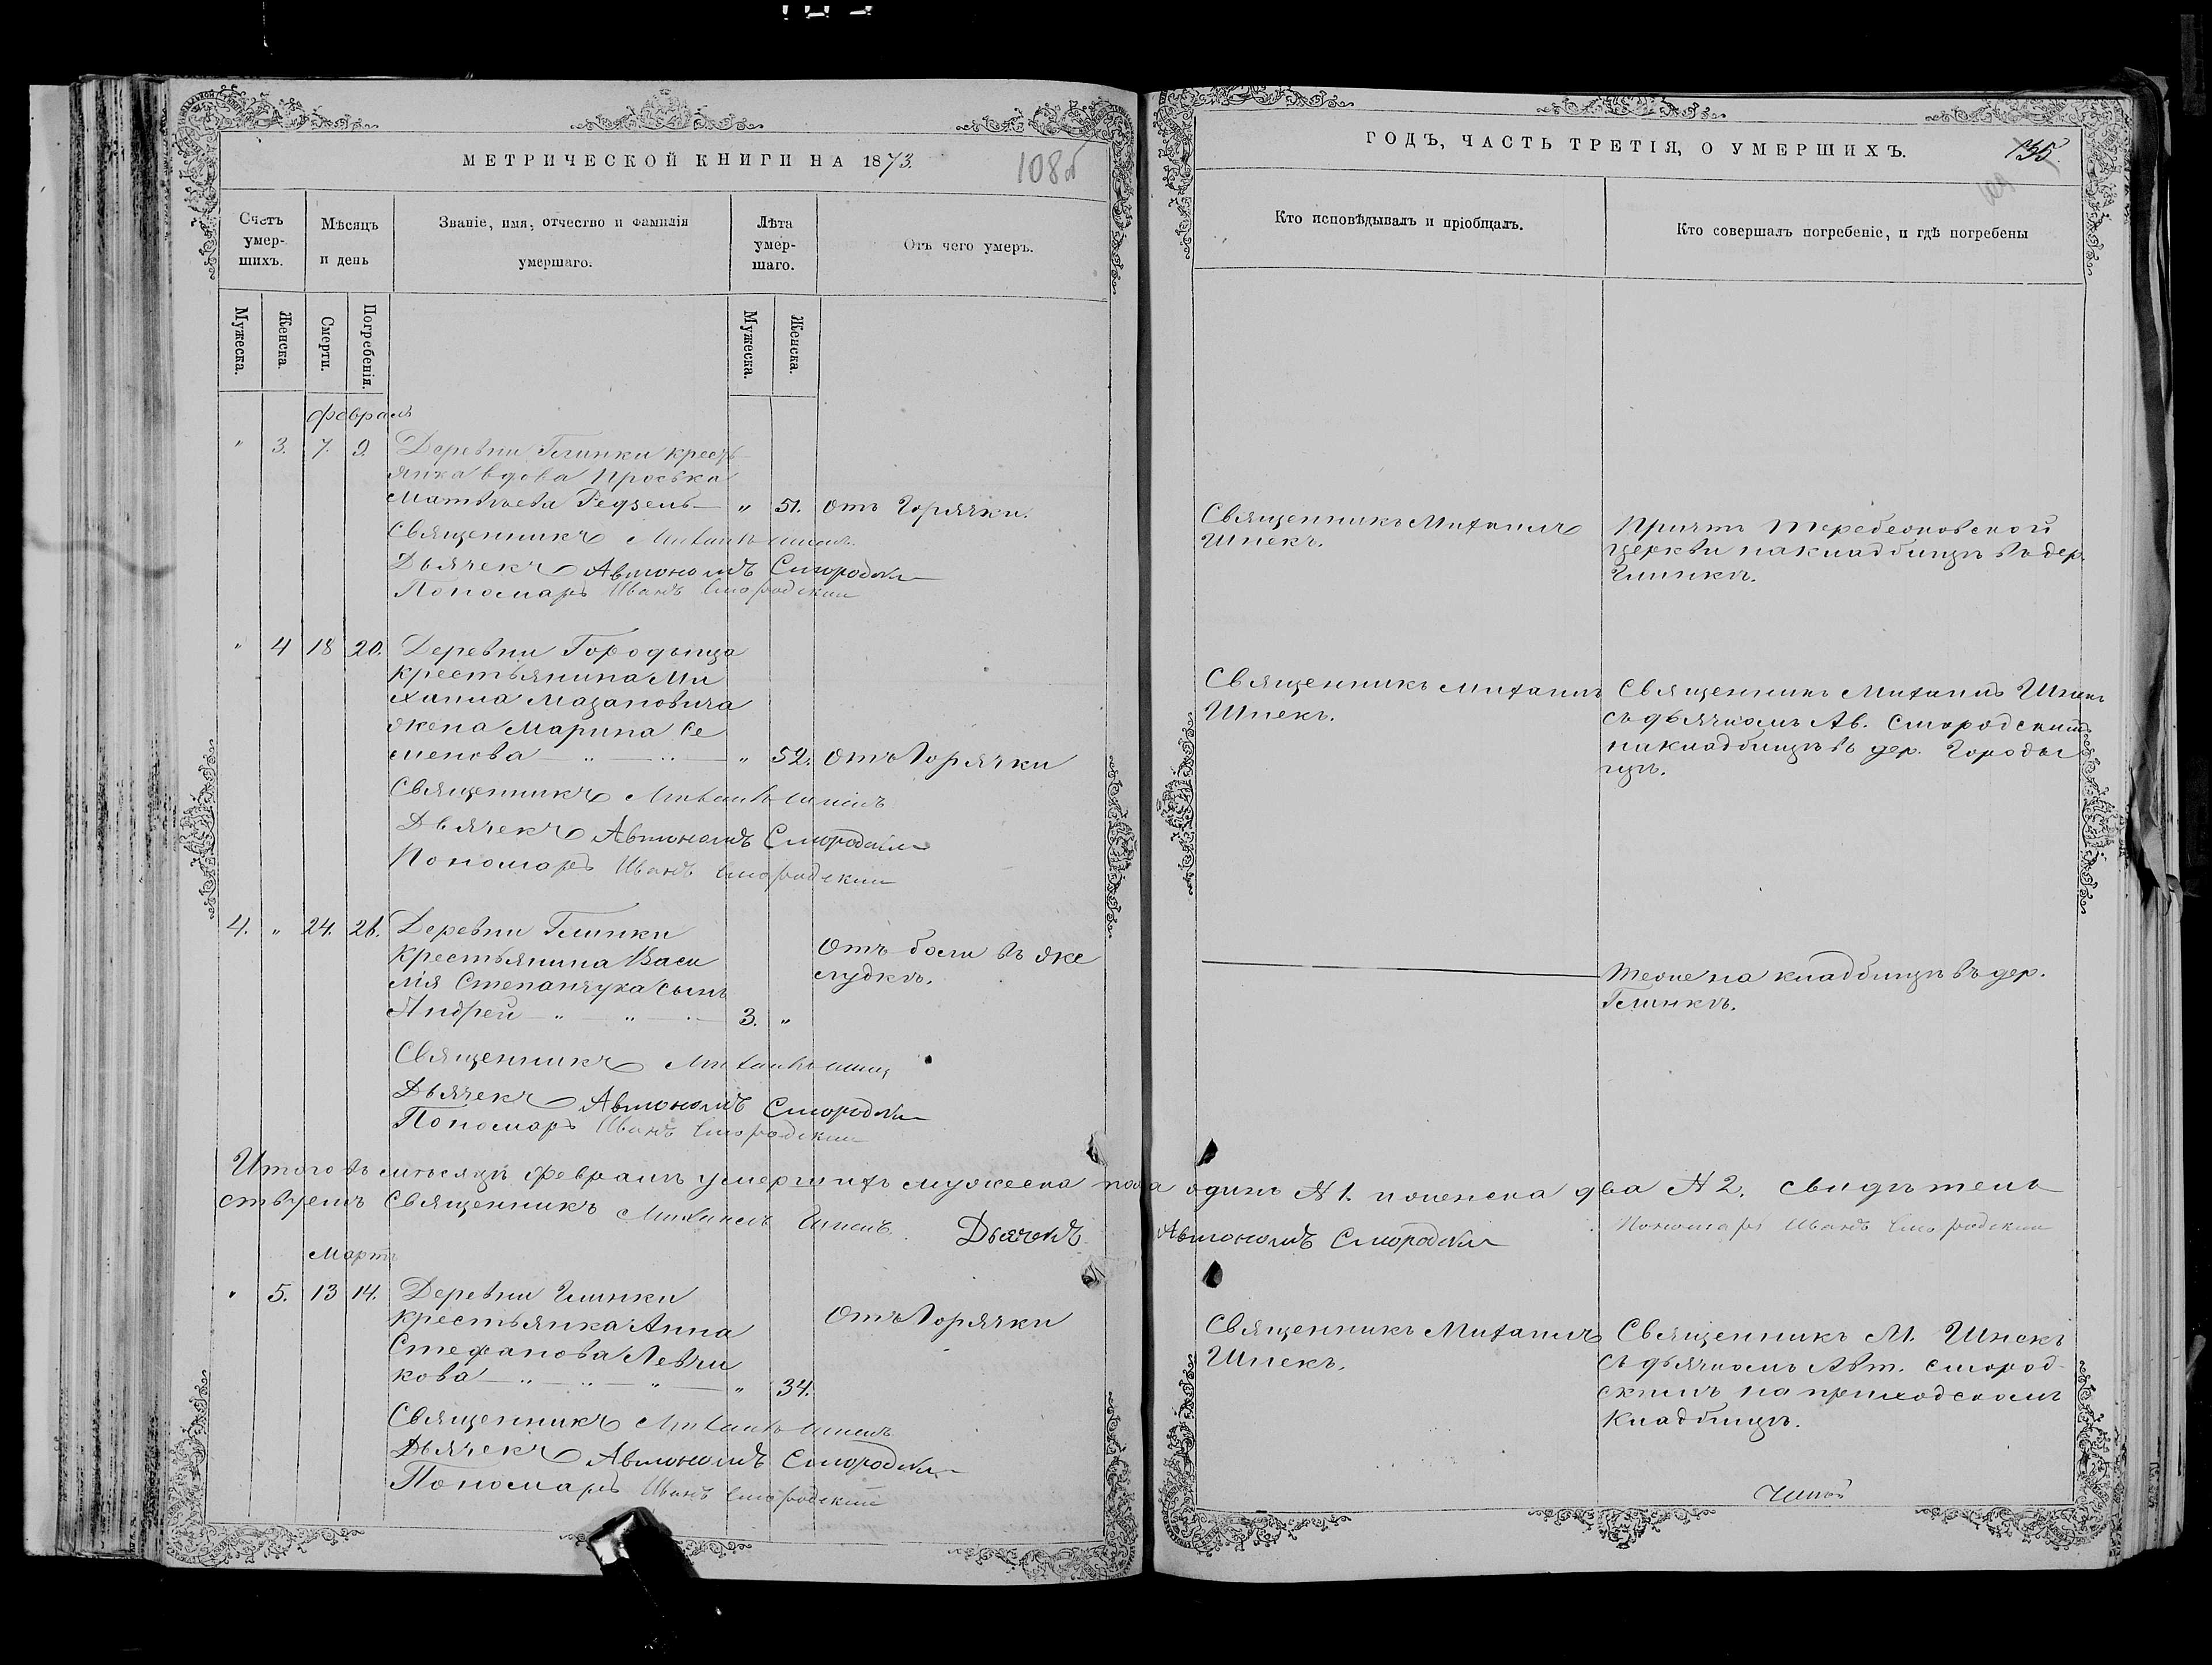 МЕТРИЧЕСКОЙ КНИГИ НА 1873
108б
Счетъ умер-
шихъ.
Мѣсяцъ
и день
Званіе, имя, отчество и фамилія
умершаго.
Лѣта
умер-
шаго.
Отъ чего умеръ.
Мужеска.
Женска.
Смерти.
Погребенія.
Мужеска.
Женска.
Февраль
" 3. 7. 9. Деревни Глинки кресть
янка вдова Проська
Матвѣева Гедзель " 51. Отъ Горячки.
Священникъ Михаилъ Шпекъ
Дьячекъ Автономъ Смородскій
Пономарь Иванъ Смородскій
" 4 18 20. Деревни Городыща
крестьянина Ми
хаила Мазановича
жена Марина Се
менова " 52. Отъ Горячки
Священникъ Михаилъ Шпекъ
Дьячекъ Автономъ Смородскій
Пономарь Иванъ Смородскій
4. " 24. 26. Деревни Глинки
крестьянина Васи
лія Степанчука сынъ
Андрей 3. "
Отъ боли въ же
лудкѣ.
Священникъ Михаилъ Шпекъ
Дьячекъ Автономъ Смородскій
Пономарь Иванъ Смородскій
Итого въ мѣсяцѣ Февралѣ умершихъ мужеска пола
ствуетъ Священникъ Михаилъ Шпекъ. Дьячекъ
Мартъ
" 5. 13 14. Деревни Глинки
крестьянка Анна
Стефанова Левчи
кова " 34.
Отъ Горячки
Священникъ Михаилъ Шпекъ
Дьячекъ Автономъ Смородскій
Пономарь Иванъ Смородскій
ГОДЪ, ЧАСТЬ ТРЕТІЯ, О УМЕРШИХЪ.
135
109
Кто исповѣдывалъ и пріобщалъ.
Кто совершалъ погребеніе, и гдѣ погребены
Священникъ Михаилъ
Шпекъ.
Причтъ Теребежовской
церкви на кладбищѣ въ дер.
Глинкѣ.
Священникъ Михаилъ
Шпекъ.
Священникъ Михаилъ Шпекъ
съ дьячкомъ Ав. Смородскимъ
на кладбищѣ въ дер. Городы
щѣ.
Тоже на кладбищѣ въ дер.
Глинкѣ.
одинъ № 1. и женска два № 2. свидѣтель
Автономъ Смородскій
Пономарь Иванъ Смородскій
Священникъ Михаилъ
Шпекъ.
Священникъ М. Шпекъ
съ дьячкомъ Авт. Смород-
скимъ на приходскомъ
кладбищѣ.